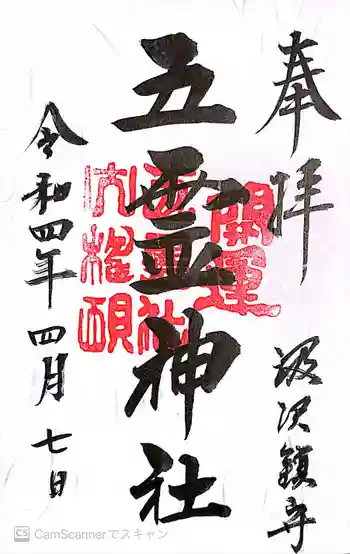 奉拝
汲沢鎮守
五霊神社
開運
令和四年四月七日
CS CamScannerでスキャン